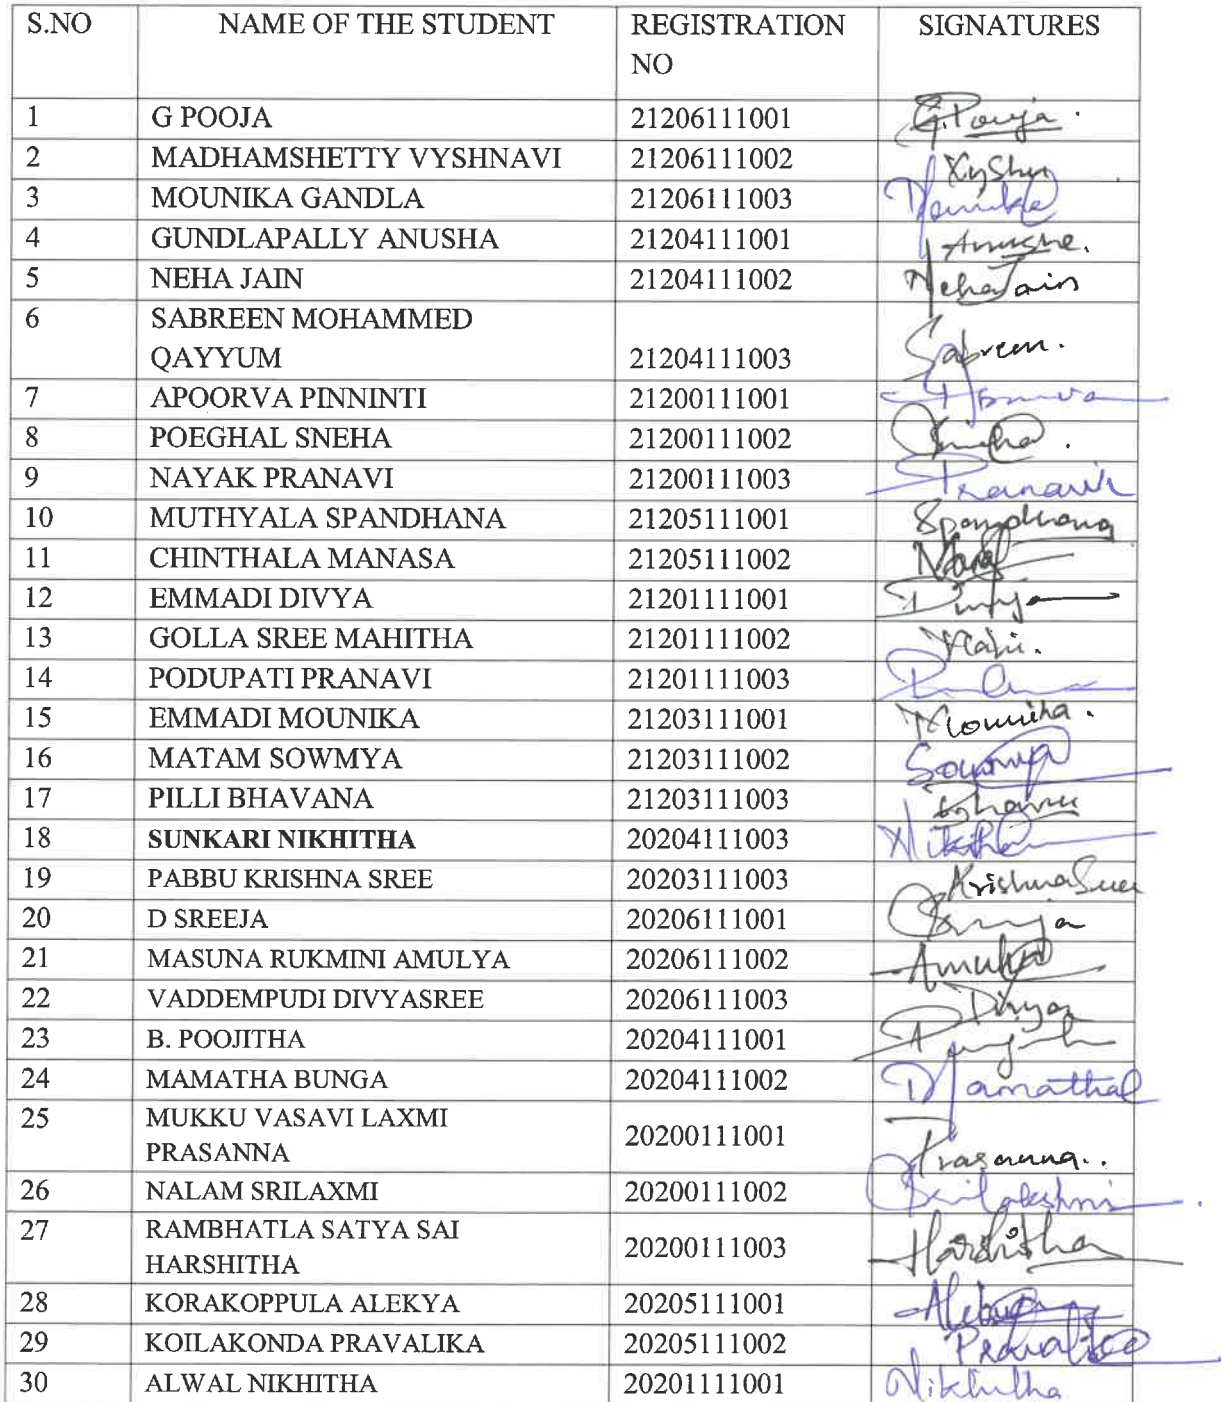 S.NO NAME OF THE STUDENT REGISTRATION SIGNATURES
NO
1 G POOJA 21206111001 G.Pouja.
2 MADHAMSHETTY VYSHNAVI 21206111002
3 MOUNIKA GANDLA 21206111003
4 GUNDLAPALLY ANUSHA 21204111001 Anushe.
5 NEHA JAIN 21204111002 Neha Jain
6 SABREEN MOHAMMED
QAYYUM 21204111003 Sabreen.
7 APOORVA PINNINTI 21200111001
8 POEGHAL SNEHA 21200111002
9 NAYAK PRANAVI 21200111003 Pranavi
10 MUTHYALA SPANDHANA 21205111001 Spandhana
11 CHINTHALA MANASA 21205111002
12 EMMADI DIVYA 21201111001
13 GOLLA SREE MAHITHA 21201111002 Mahi.
14 PODUPATI PRANAVI 21201111003
15 EMMADI MOUNIKA 21203111001 Mounika.
16 MATAM SOWMYA 21203111002 Sowmya
17 PILLI BHAVANA 21203111003
18 SUNKARI NIKHITHA 20204111003
19 PABBU KRISHNA SREE 20203111003 Krishna Sree
20 D SREEJA 20206111001
21 MASUNA RUKMINI AMULYA 20206111002
22 VADDEMPUDI DIVYASREE 20206111003 Divya
23 B. POOJITHA 20204111001
24 MAMATHA BUNGA 20204111002
25 MUKKU VASAVI LAXMI
PRASANNA 20200111001 Prasanna..
26 NALAM SRILAXMI 20200111002 Srilakshmi
27 RAMBHATLA SATYA SAI
HARSHITHA 20200111003 Harshitha
28 KORAKOPPULA ALEKYA 20205111001
29 KOILAKONDA PRAVALIKA 20205111002
30 ALWAL NIKHITHA 20201111001 Nikhitha